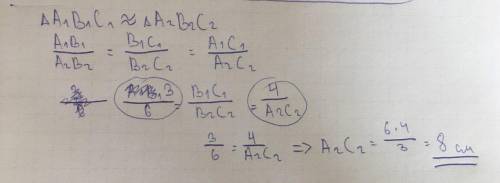 △A₁B₁C₁ ≈ △A₂B₂C₂
A₁B₁/A₂B₂ = B₁C₁/B₂C₂ = A₁C₁/A₂C₂
3/6 = B₁C₁/B₂C₂ = 4/A₂C₂
3/6 = 4/A₂C₂ => A₂C₂ = 6·4/3 = 8 см